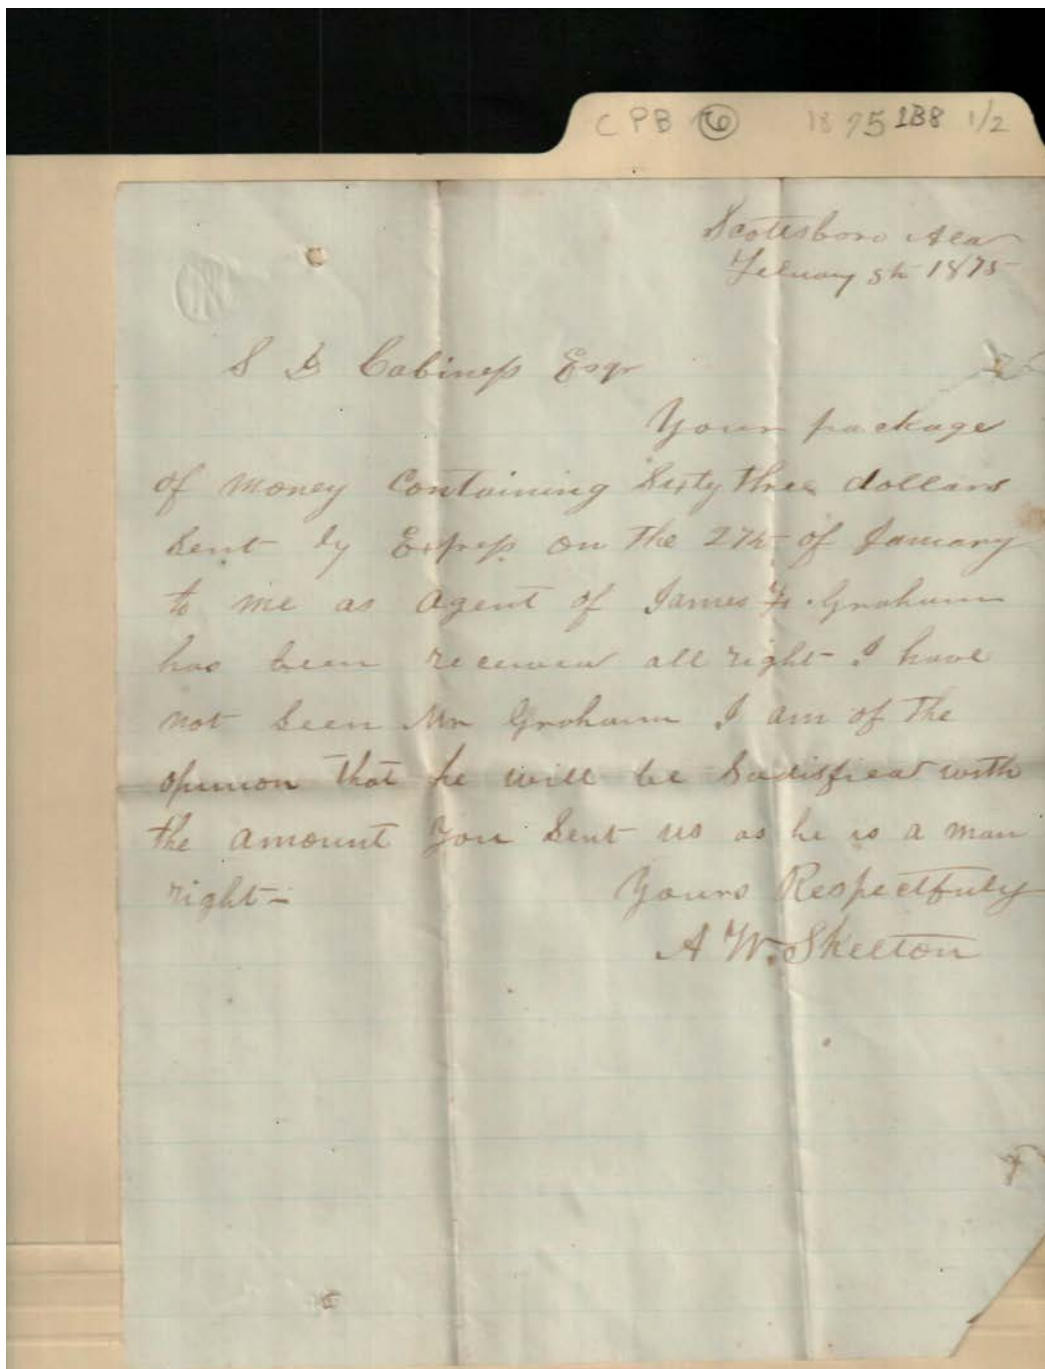 CPB 6 1875 1B8 1/2
Scottsboro Ala
February 5th 1875
S D Cabiness Esqr
Your package
of money containing Sixty three dollars
Sent by Express on the 27th of January
to me as Agent of James F. Graham
has been received all right. I have
not seen Mr Graham I am of the
opinion that he will be Sadisfied with
the amount you Sent us as he is a man
right-
Yours Respectfuly
A W. Skelton